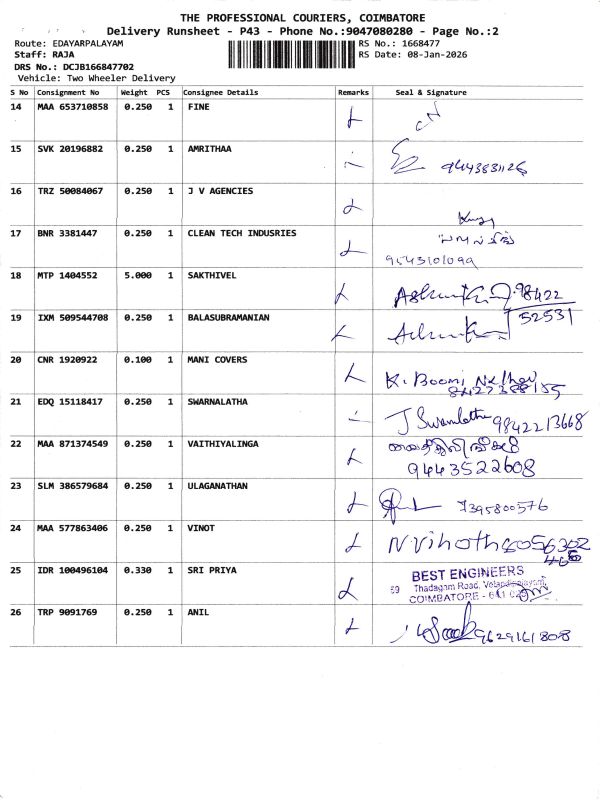 THE PROFESSIONAL COURIERS, COIMBATORE
Delivery Runsheet - P43 - Phone No.:9047080280 - Page No.:2
Route: EDAYARPALAYAM RS No.: 1668477
Staff: RAJA RS Date: 08-Jan-2026
DRS No.: DCJB166847702
Vehicle: Two Wheeler Delivery
S No Consignment No Weight PCS Consignee Details Remarks Seal & Signature
14 MAA 653710858 0.250 1 FINE
15 SVK 20196882 0.250 1 AMRITHAA
16 TRZ 50084067 0.250 1 J V AGENCIES
17 BNR 3381447 0.250 1 CLEAN TECH INDUSRIES
9543101099
18 MTP 1404552 5.000 1 SAKTHIVEL 98422
19 IXM 509544708 0.250 1 BALASUBRAMANIAN 52531
20 CNR 1920922 0.100 1 MANI COVERS K. Boomi
21 EDQ 15118417 0.250 1 SWARNALATHA J Swarnlatha 9842213668
22 MAA 871374549 0.250 1 VAITHIYALINGA
9443522608
23 SLM 386579684 0.250 1 ULAGANATHAN 7395800576
24 MAA 577863406 0.250 1 VINOT N Vinoth
25 IDR 100496104 0.330 1 SRI PRIYA BEST ENGINEERS
59 Thadagam Road,
COIMBATORE - 641 025
26 TRP 9091769 0.250 1 ANIL 9629161808